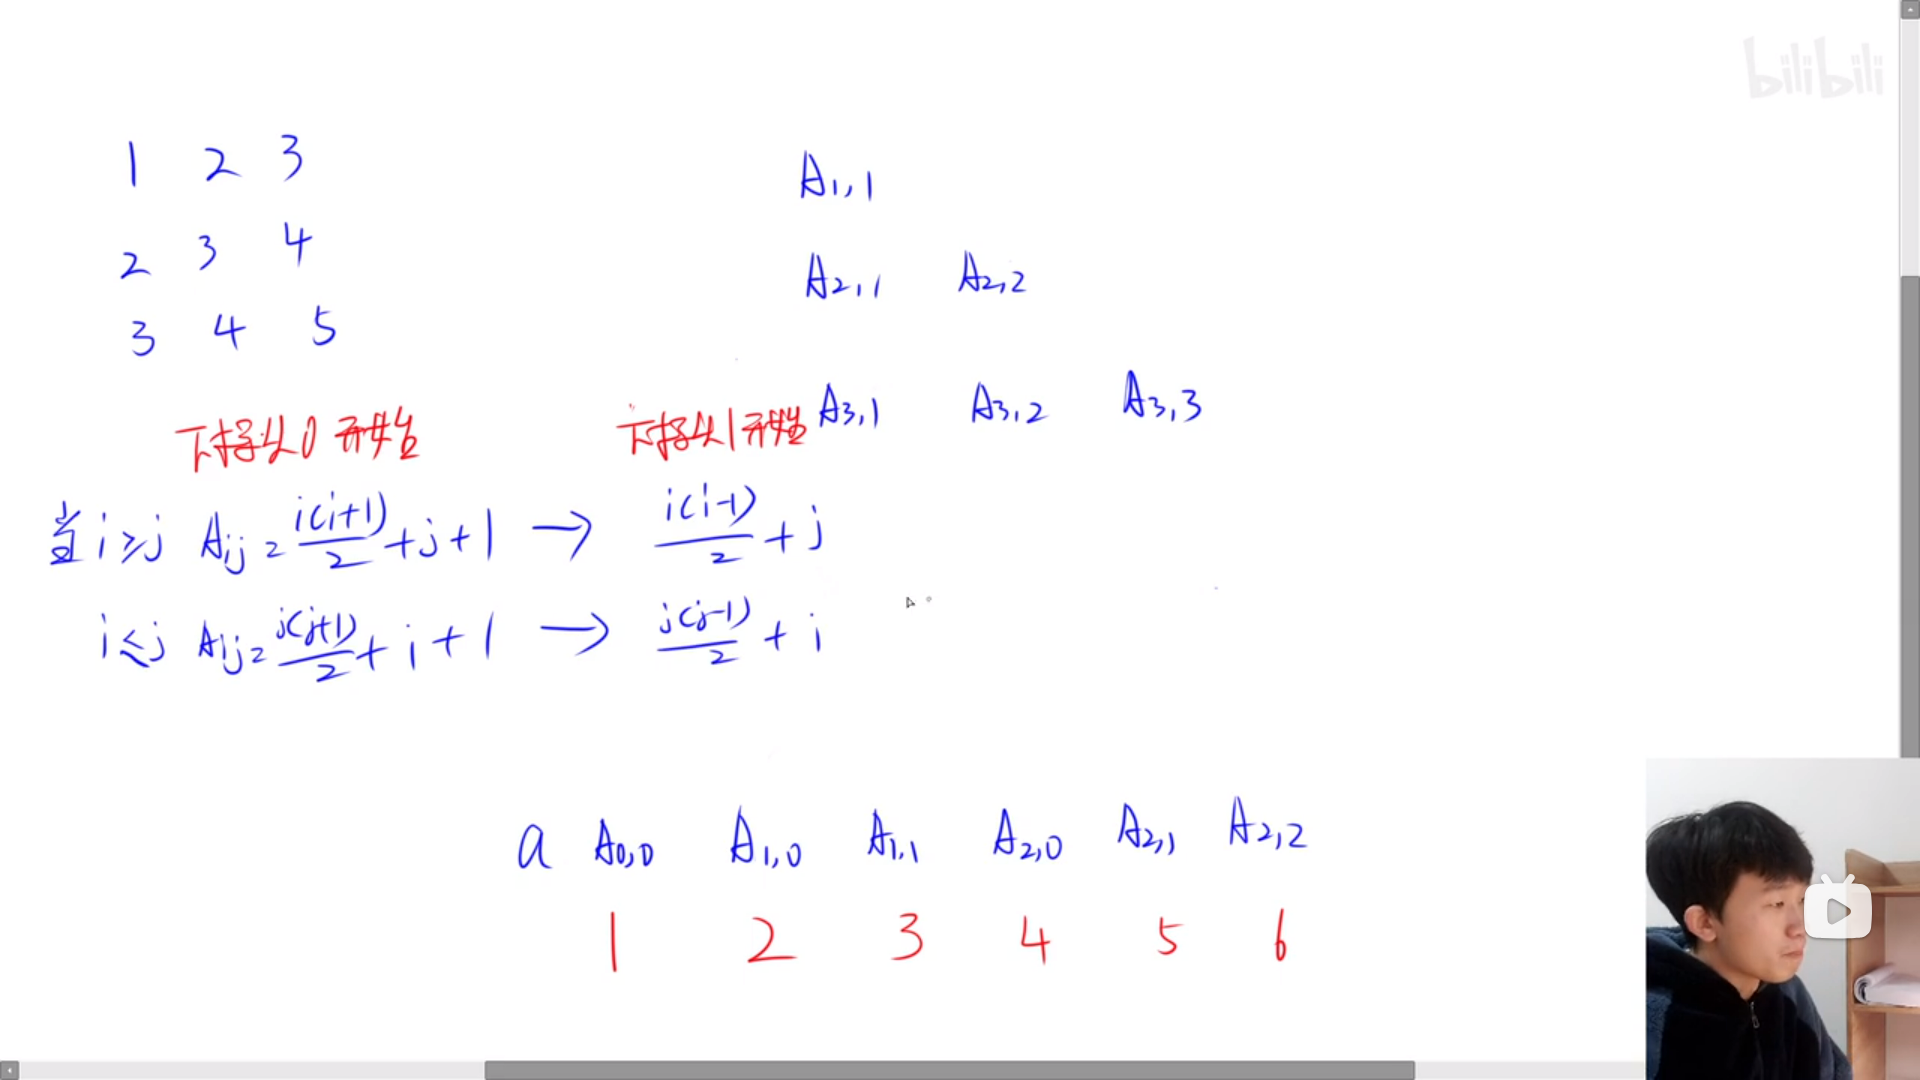 bilibili
1 2 3
2 3 4
3 4 5
A1,1
A2,1 A2,2
A3,1 A3,2 A3,3
下标从0开始
下标从1开始
当 i≥j Aij = i(i+1)/2 + j + 1 → i(i-1)/2 + j
i≤j Aij = j(j+1)/2 + i + 1 → j(j-1)/2 + i
a A0,0 A1,0 A1,1 A2,0 A2,1 A2,2
1 2 3 4 5 6